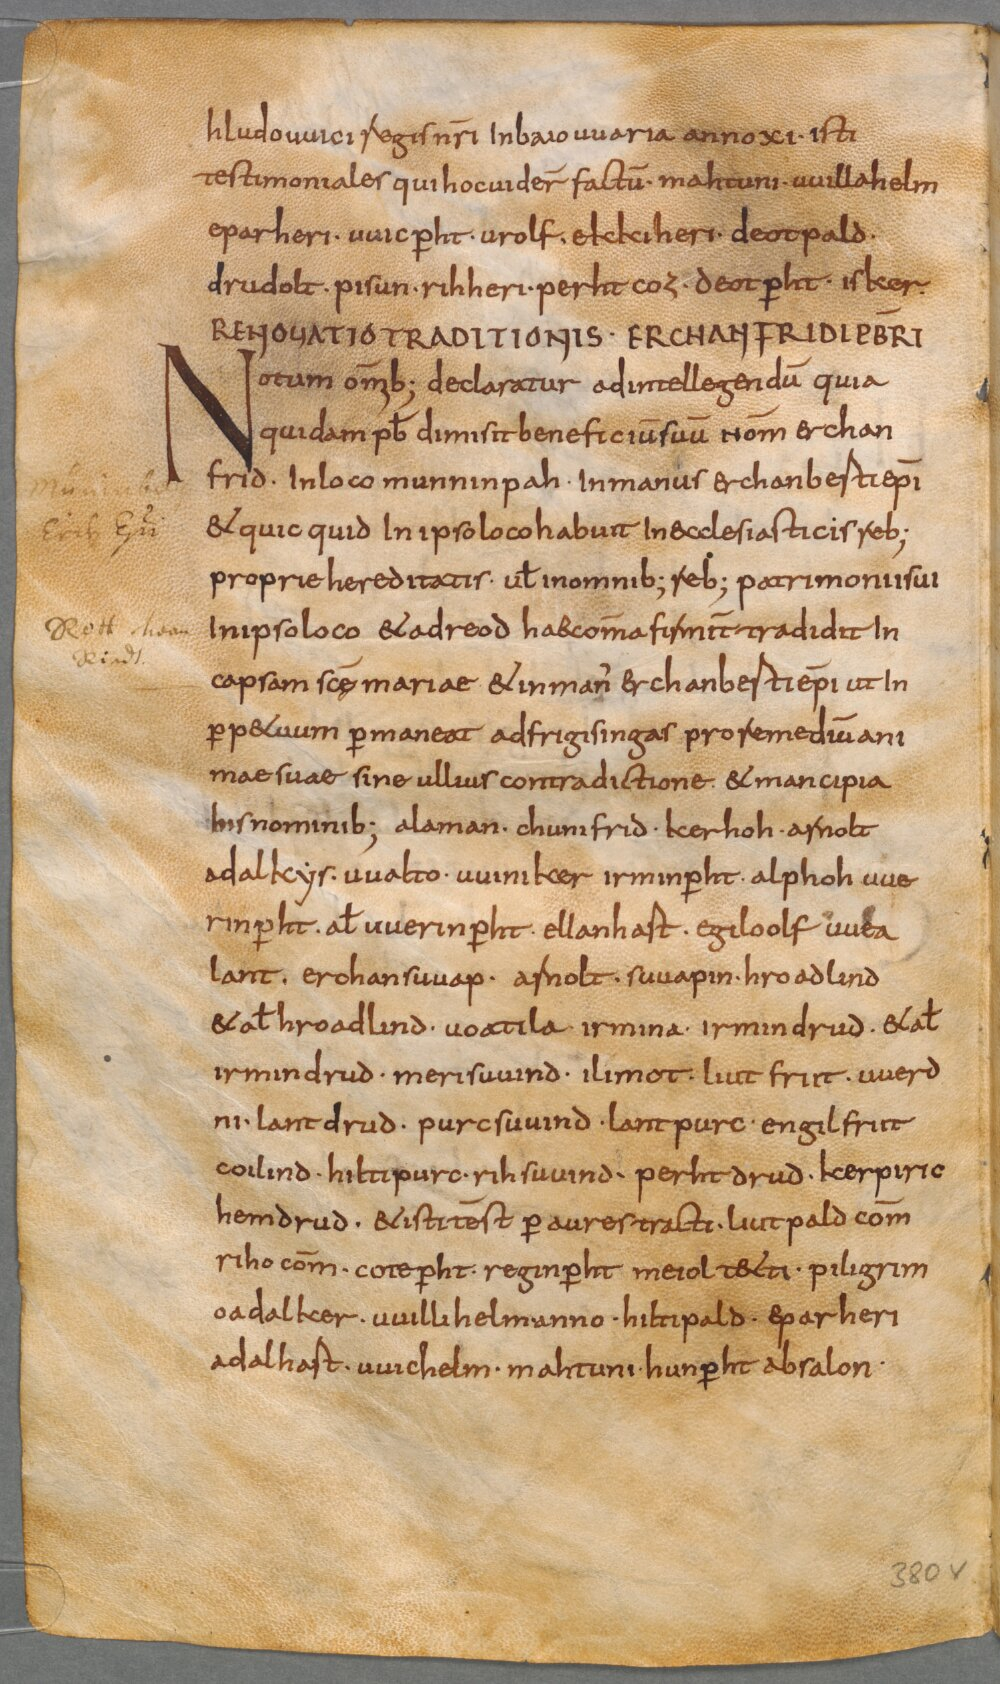 hludouuici regis nr̄i Inbaiouuaria anno xi· isti
testimoniales qui hoc uider̄ factū· mahtuni· uuillahelm
eparheri· uuicp̱ht· urolf· ekkiheri· deotpald·
drudolt· pisun· rihheri· perht coz· deotp̱ht· isker·
RENOUATIO TRADITIONIS· ERCHANFRIDI PB̄RI
Notum om̄ib; declaratur ad intellegendū quia
quidam pb̄ dimisit beneficiū suū nom̄ erchan
frid· In loco munninpah· In manus erchanberti ep̄i
& quicquid In ipso loco habuit In ecclesiasticis reb;
proprie hereditatis· ut̄ in omnib; reb; patrimonii sui
In ipso loco & ad reod haec om̄a firmit̄ tradidit In
capsam scę̄ mariae & in man̄ erchanberti ep̄i ut In
p̱p&uum p̱maneat ad frigisingas pro remediū ani
mae suae sine ullius contradictione· & mancipia
his nominib; alaman· chunifrid· kerhoh· arnolt
adalkẏs· uualto· uuiniker irminp̱ht· alphoh uue
rinp̱ht· at̄ uuerinp̱ht· ellanhast· egilolf uuea
lant· erchansuuap· arnolt· suuapin· hroadlind
& at̄ hroadlind· uoatila· irmina· irmindrud· & at̄
irmindrud· merisuuind· ilimot· liutfrit· uuerd
ni· lantdrud· purcsuuind· lantpurc· engilfrit
coilind· hiltipurc· rihsuuind· perhtdrud· kerpiric
hemdrud· & isti tēst p̱ aures tracti· liutpald com̄
riho com̄· cotep̱ht· reginp̱ht meiol t&ti· piligrim
oadalker· uuillihelm· anno· hiltipald· eparheri
adalhast· uuichelm· mahtuni· hunp̱ht absalon·
Rott
380 v